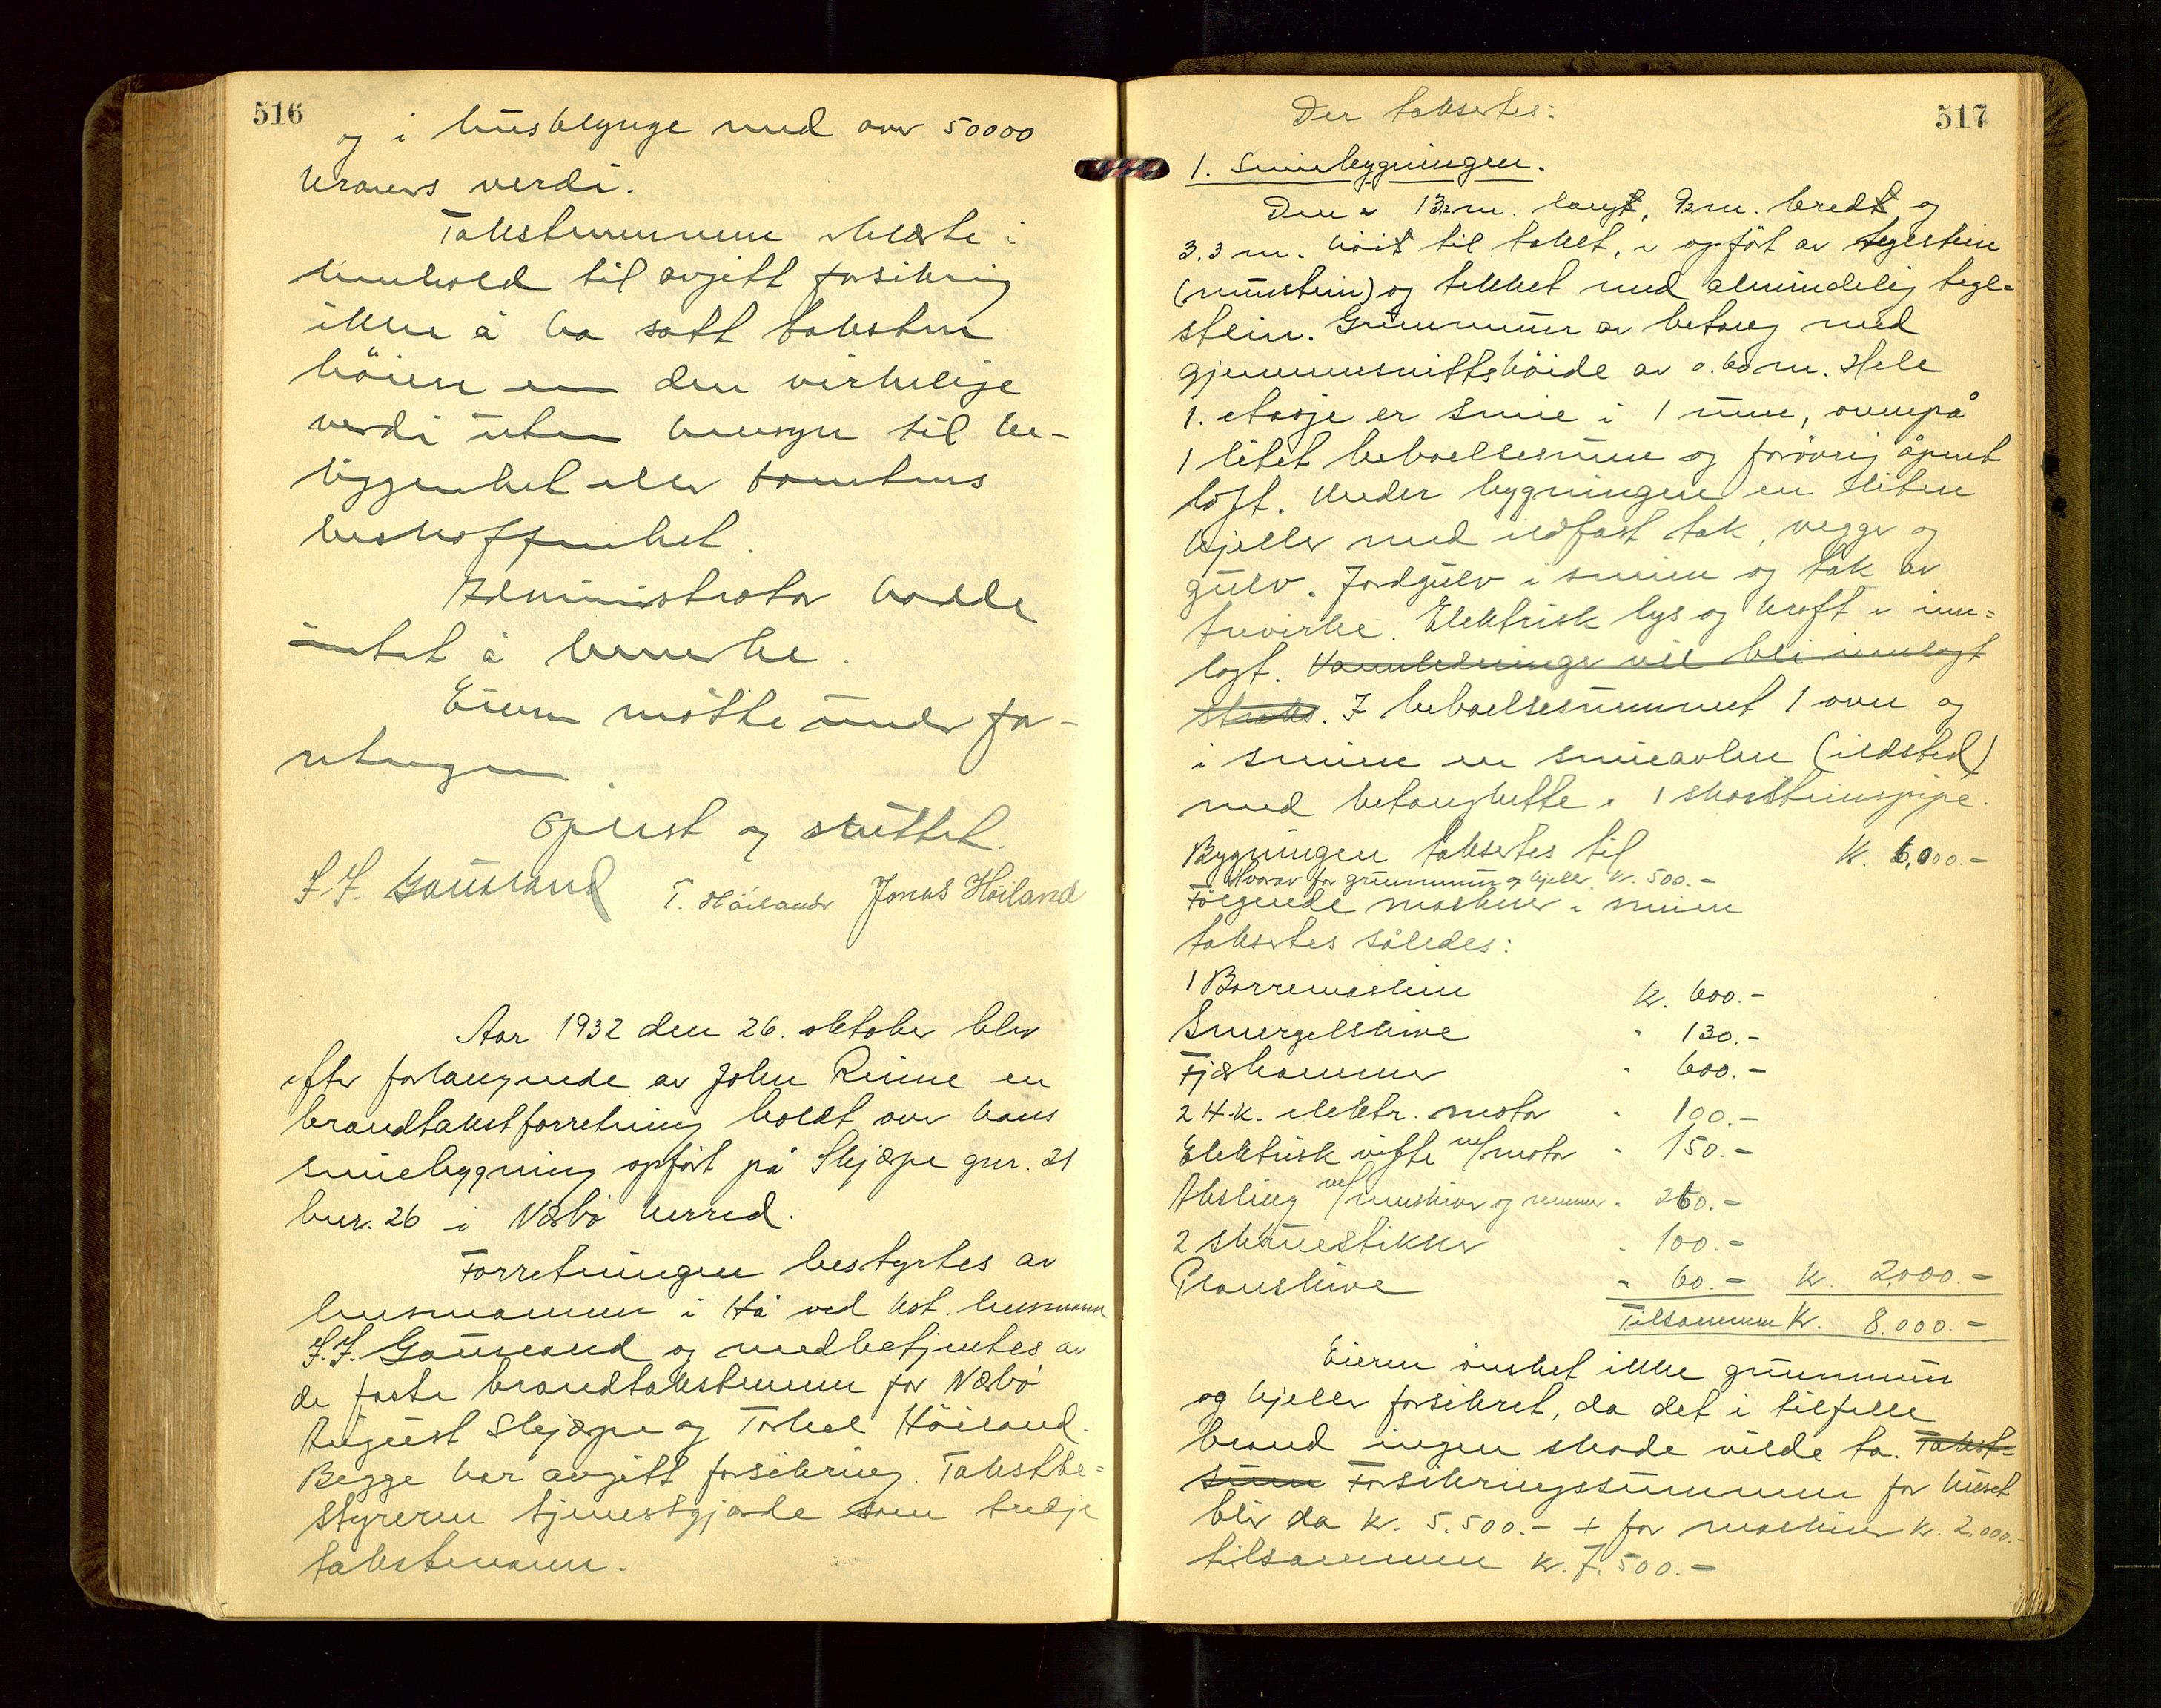 516
og i husklynge med over 50000
kroners verdi.
Takstmennene erklærte i
henhold til avgitt forsikring
ikke å ha satt taksten
höiere enn den virkelige
verdi uten hensyn til be-
liggenhet eller tomtens
beskaffenhet.
Administrator hadde
intet å bemerke.
Eieren mötte under for-
retningen
Oplest og sluttet.
J. J. Gausland T. Höiland Jonas Höiland
Aar 1932 den 26. oktober blev
efter forlangende av John Rinne en
brandtakstforretning holdt over hans
smiebygning opfört på Skjærpe gnr. 21
bnr. 26 i Nærbö herred.
Forretningen bestyrtes av
lensmannen i Hå ved kst. lensmann
J. J. Gausland og medbetjentes av
de faste brandtakstmenn for Nærbö
August Skjærpe og Torkel Höiland.
Begge har avgitt forsikring. Takstbe=
styreren tjenestgjorde som tredje
takstmann.
517
Der taksertes:
1. Smiebygningen.
Den er 13½ m. lang, 9½ m. bred og
3.3 m. höi til taket, er opfört av teglstein
(murstein) og tekket med almindelig tegl=
stein. Grunnmur av betong med
gjennemsnittshöide av 0.60 m. Hele
1. etasje er smie i 1 rum, ovenpå
1 litet beboelsesrum og forövrig åpent
loft. Under bygningen en liten
kjeller med ildfast tak, vegger og
gulv. Jordgulv i smien og tak av
trevirke. Elektrisk lys og kraft er inn=
lagt. Vannledninger vil bli innlagt
straks. I beboelsesrummet 1 ovn og
i smien en smieavlen (ildsted)
med betonghette. 1 skorsteinspipe.
Bygningen taksertes til Kr. 6,000.-
Hvorav for grunnmur og kjeller kr. 500.-
Fölgende maskiner i smien
taksertes således:
1 Borremaskin Kr. 600.-
Smergelskive " 130.-
Fjærhammer " 600.-
2 H.K. elektr. motor " 100.-
Elektrisk vifte m/motor " 150.-
Aksling m/remskiver og remmer " 260.-
2 skruestikker " 100.-
Planskive " 60.- Kr. 2,000.-
Tilsammen Kr. 8,000.-
Eieren önsket ikke grunnmur
og kjeller forsikret, da det i tilfelle
brand ingen skade vilde ta. Takst=
sum Forsikringssummen for huset
blir da kr. 5.500.- + for maskiner kr. 2.000.-
tilsammen kr. 7.500.-